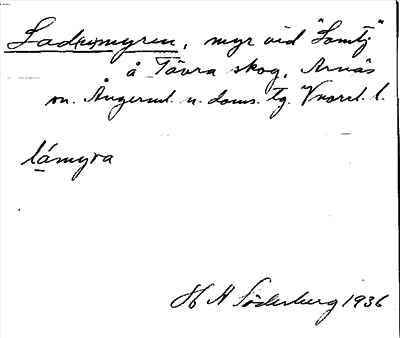 Ladumyren, myr vid "Lomtj"
å Tävra skog, Arnäs
sn. Ångerml. n. doms. tg. Vnorrl. l.
lámyra
H A Söderberg 1936